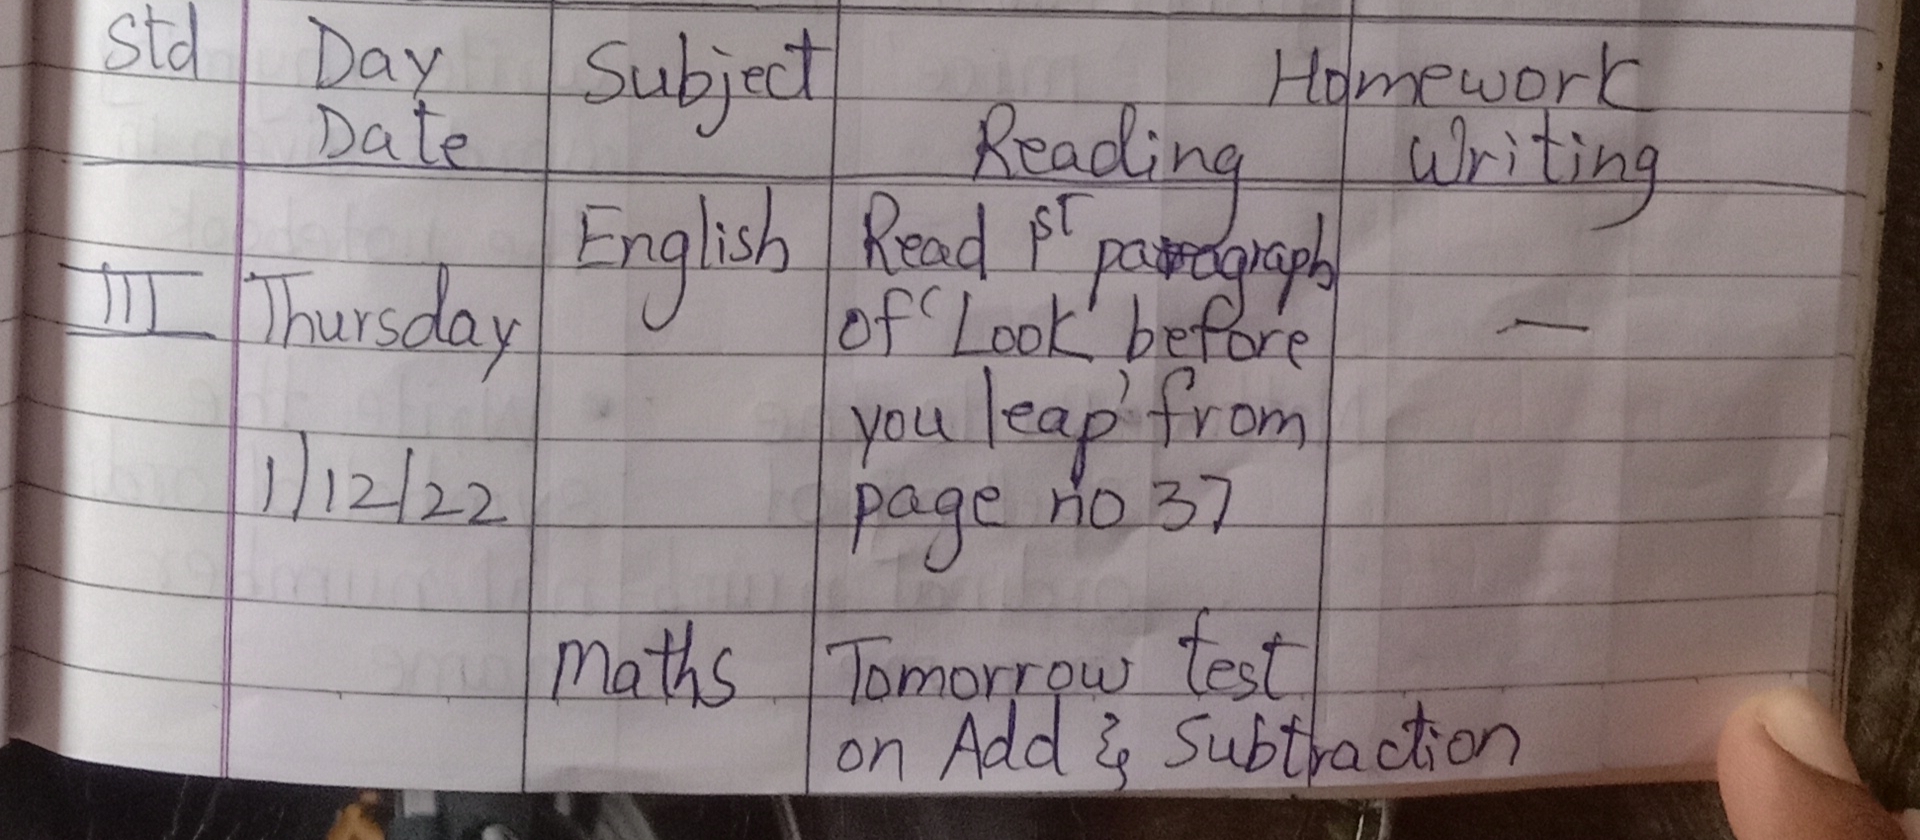 Std Day Subject Homework
Date Reading Writing
English Read 1st paragraph
III Thursday of 'Look before —
you leap' from
1/12/22 page no 37
Maths Tomorrow test
on Add & Subtraction